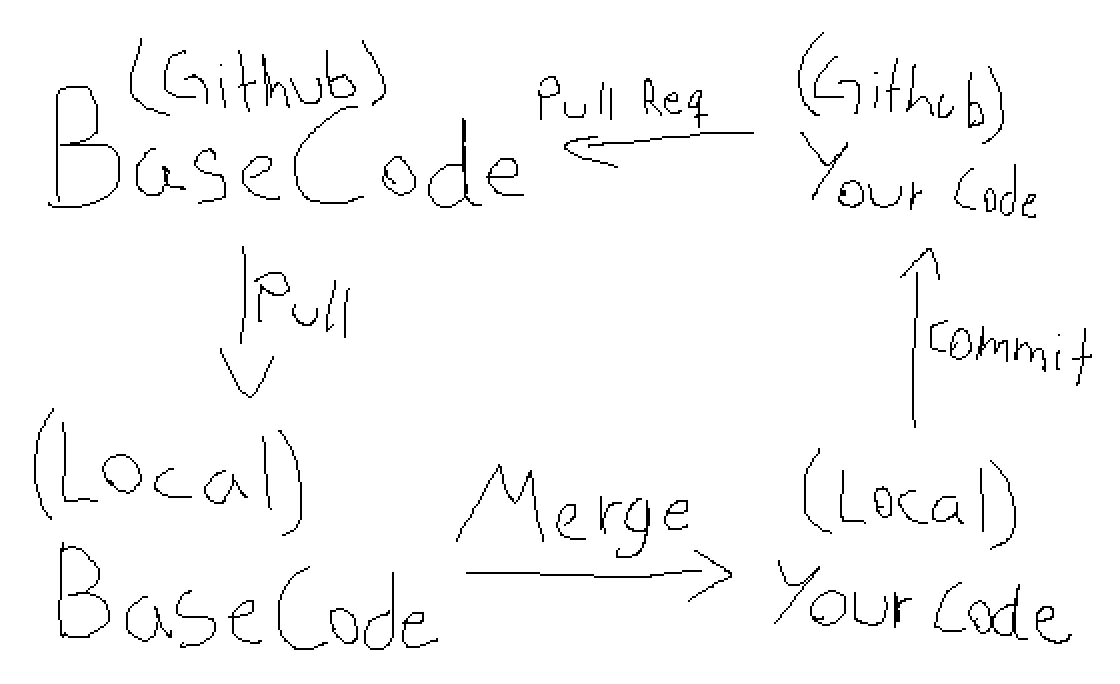 (Github)
BaseCode
Pull Req
(Github)
Your Code
Pull
commit
(Local)
BaseCode
Merge
(Local)
Your Code